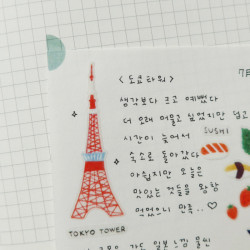 <도쿄타워>
생각보다 크고 예뻤다
더 오래 머물고 싶었지만 덥고
시간이 늦어서
숙소로 돌아갔다
아쉽지만 오늘은
맛있는 것들을 왕창
먹었으니 만족..♡
SUSHI
TOKYO TOWER